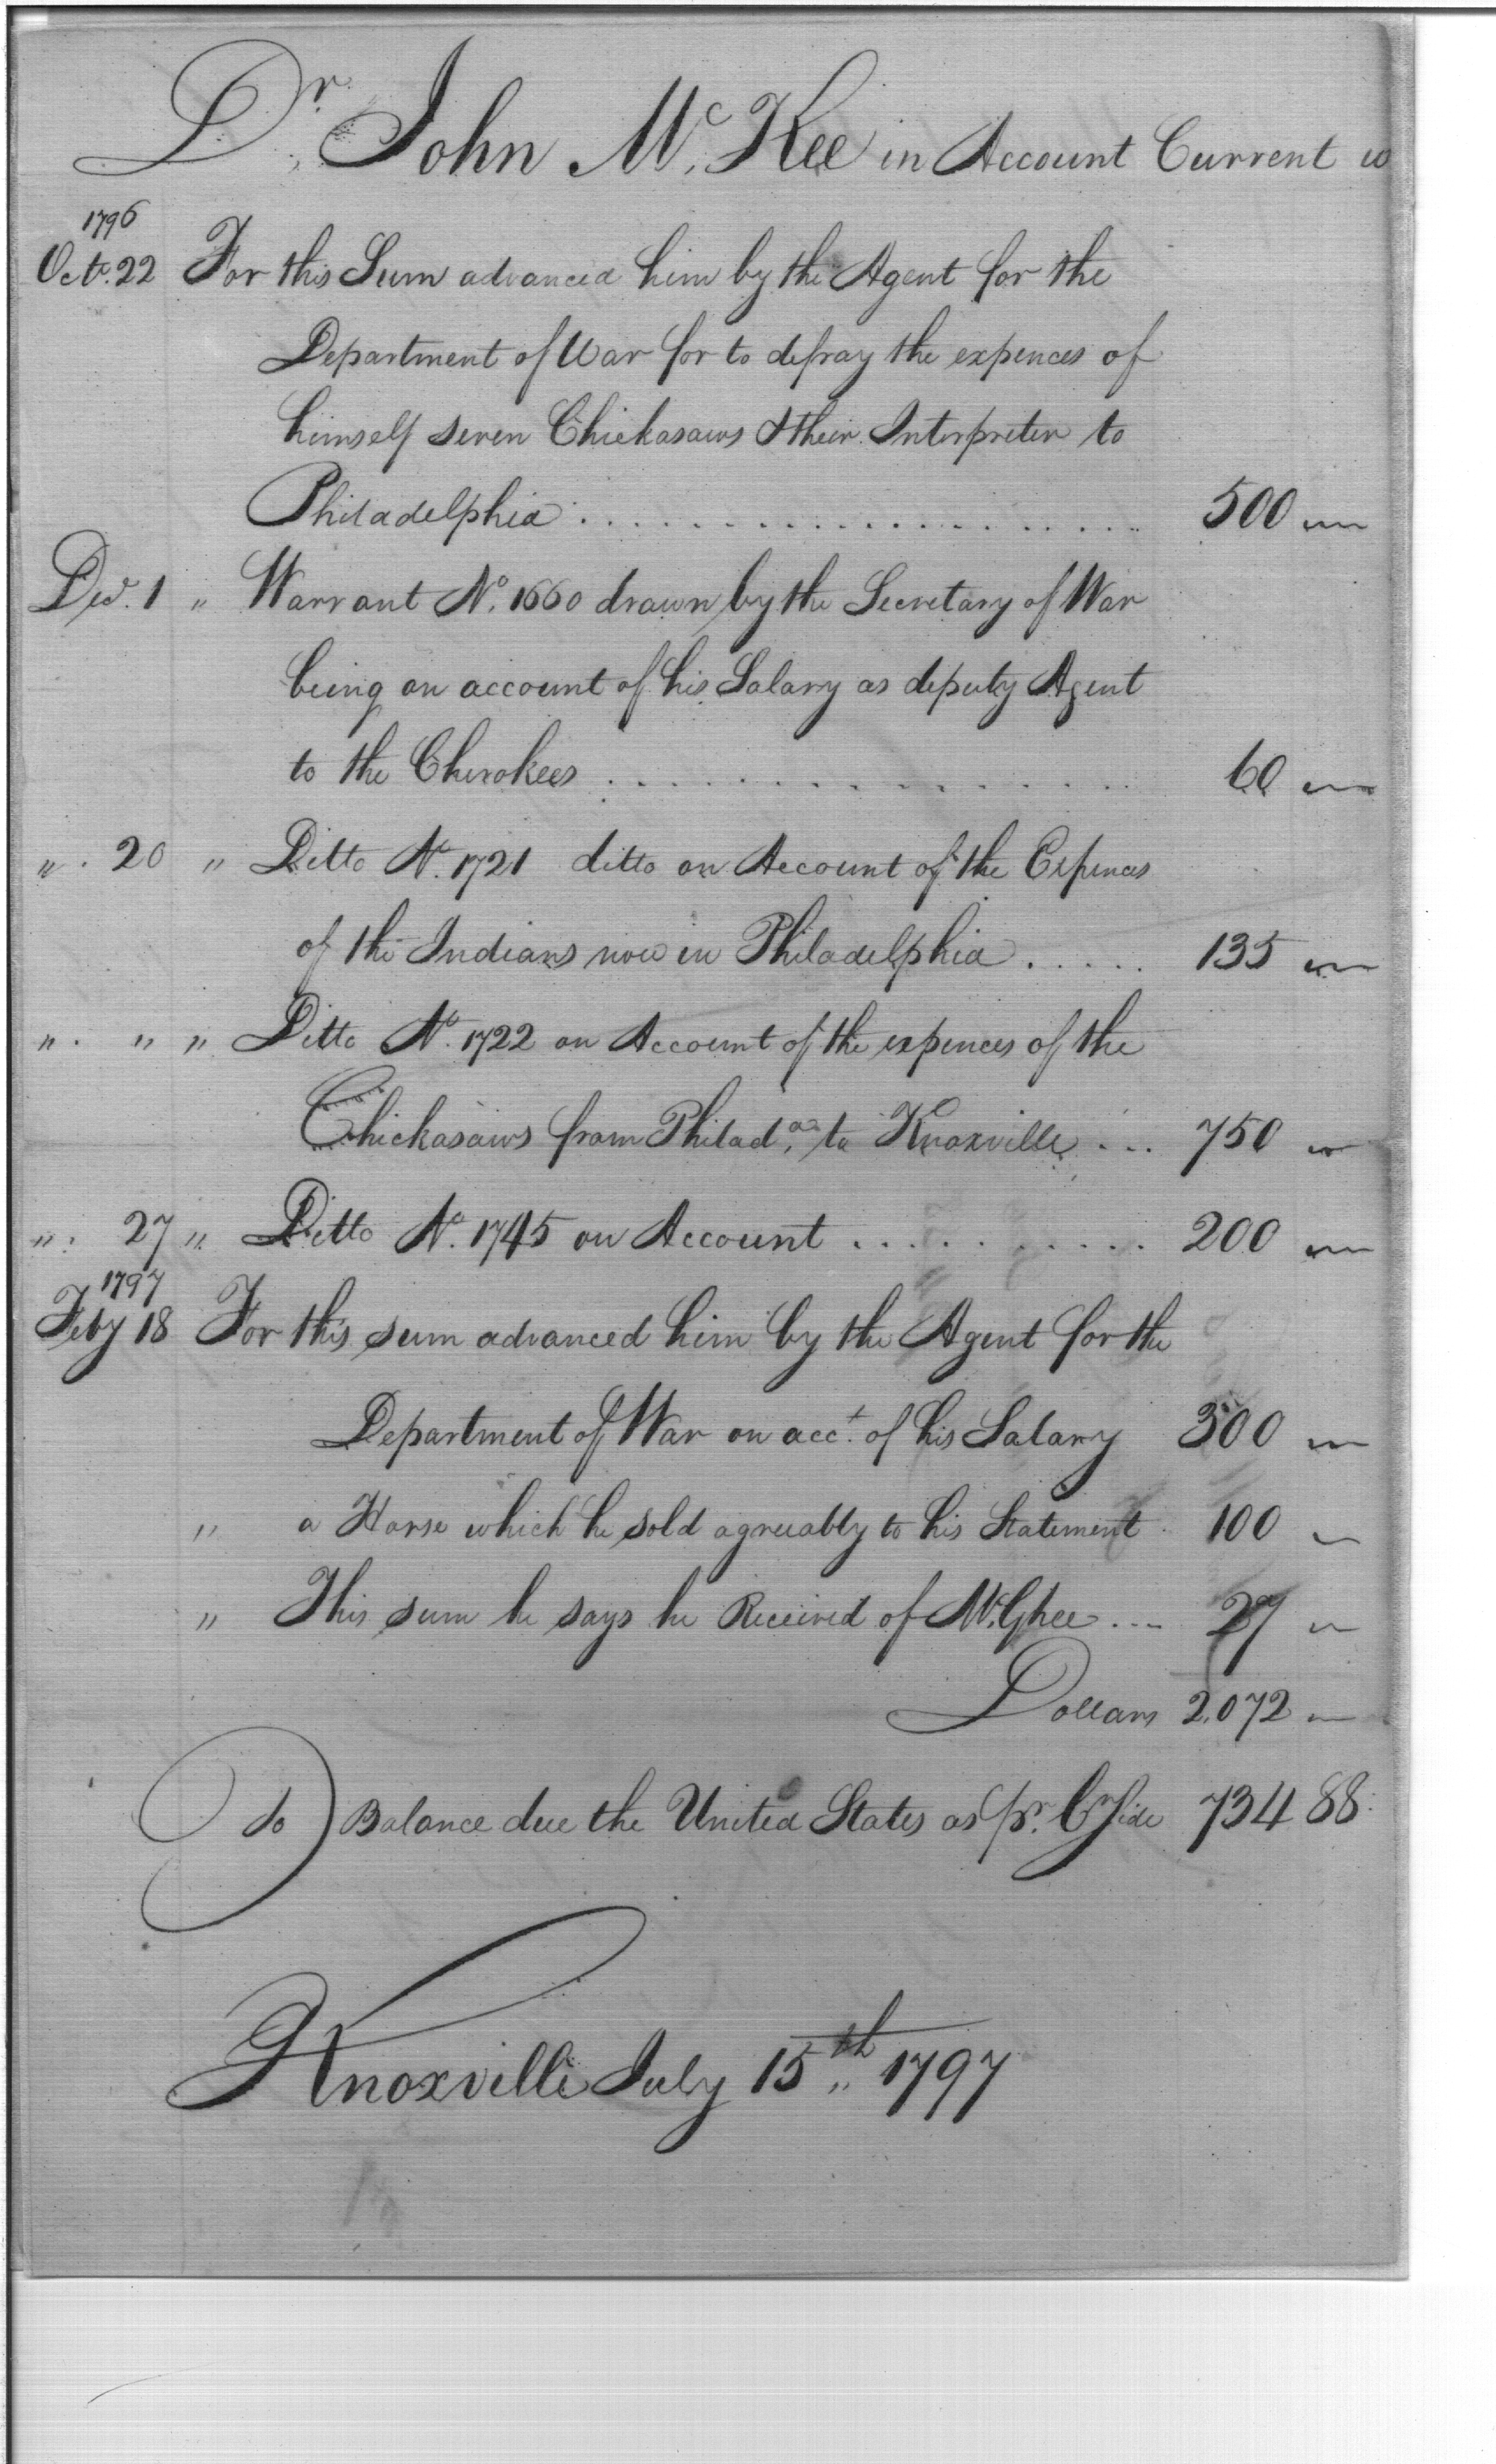 Dr. John McKee in Account Current w
1796
Octr. 22 For this Sum advanced him by the Agent for the
Department of War for to defray the expences of
himself seven Chickasaws & their Interpreter to
Philadelphia . . . . . . . . . . . . . . . . . . . . 500
Decr. 1 " Warrant No. 1660 drawn by the Secretary of War
being on account of his Salary as deputy Agent
to the Cherokees . . . . . . . . . . . . . . . . . 60
" . 20 " Ditto No. 1721 ditto on Account of the Expences
of the Indians now in Philadelphia . . . . . 135
" . " " Ditto No. 1722 on Account of the expences of the
Chickasaws from Philada. to Knoxville . . . 750
" . 27 " Ditto No. 1745 on Account . . . . . . . . . . . 200
1797
Feby 18 For this sum advanced him by the Agent for the
Department of War on acct. of his Salary 300
" a Horse which he sold agreeably to his Statement 100
" This sum he says he Received of McGhee . . . 27
Dollars 2,072
To Balance due the United States as pr. Cr Side 734 88
Knoxville July 15th 1797